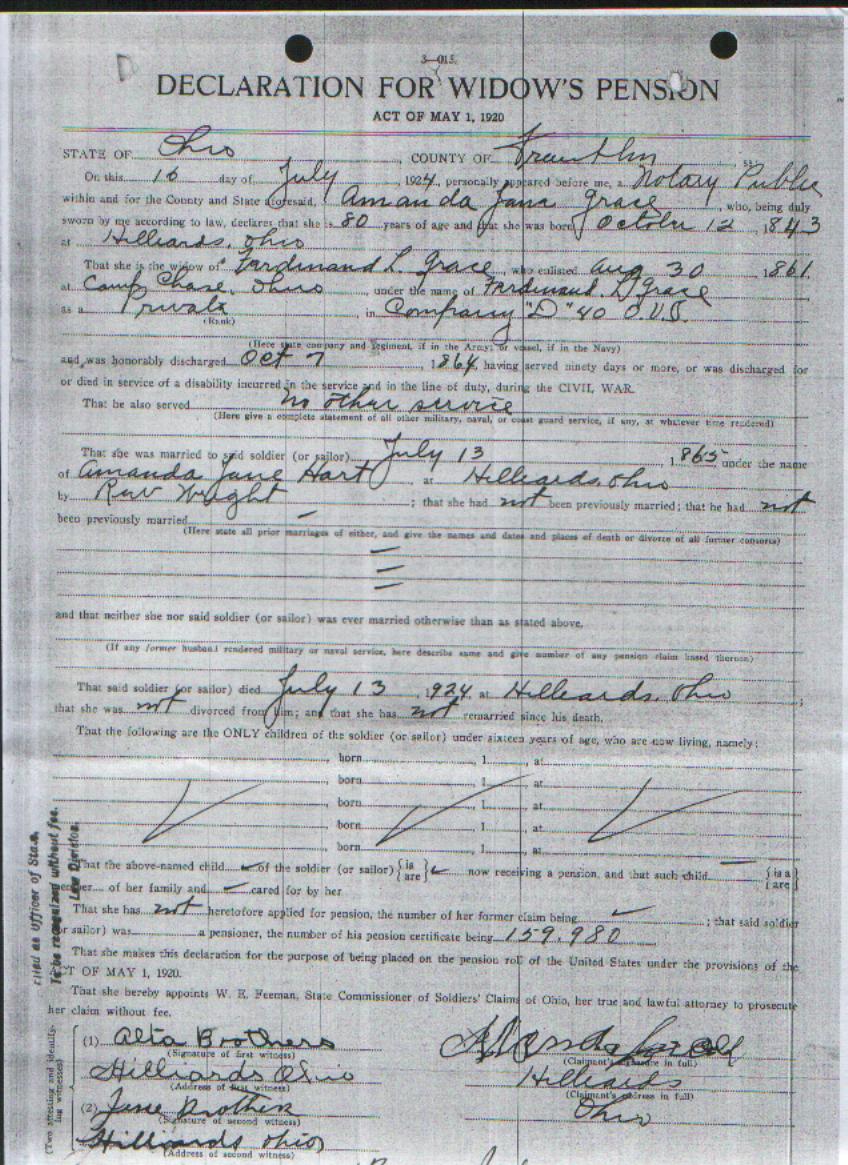 3—015.
DECLARATION FOR WIDOW'S PENSION
ACT OF MAY 1, 1920
STATE OF Ohio, COUNTY OF Franklin, ss:
On this 16 day of July, 1924, personally appeared before me, a Notary Public
within and for the County and State aforesaid, Amanda Jane Grace, who, being duly
sworn by me according to law, declares that she is 80 years of age and that she was born October 12, 1843
at Hilliards, Ohio
That she is the widow of Ferdinand L. Grace, who enlisted Aug 30 1861
at Camp Chase, Ohio under the name of Ferdinand L Grace
as a Private in Company "D" 40 O.V.I.
(Rank)
(Here state company and regiment, if in the Army; or vessel, if in the Navy)
and was honorably discharged Oct 7, 1864, having served ninety days or more, or was discharged for
or died in service of a disability incurred in the service and in the line of duty, during the CIVIL WAR.
That he also served no other service
(Here give a complete statement of all other military, naval, or coast guard service, if any, at whatever time rendered)
That she was married to said soldier (or sailor) July 13, 1865, under the name
of Amanda Jane Hart at Hilliards, Ohio
by Rev Wright; that she had not been previously married; that he had not
been previously married —
(Here state all prior marriages of either, and give the names and dates and places of death or divorce of all former consorts)
—
—
—
and that neither she nor said soldier (or sailor) was ever married otherwise than as stated above.
(If any former husband rendered military or naval service, here describe same and give number of any pension claim based thereon)
That said soldier (or sailor) died July 13, 1924 at Hilliards, Ohio;
that she was not divorced from him; and that she has not remarried since his death.
That the following are the ONLY children of the soldier (or sailor) under sixteen years of age, who are now living, namely:
, born , 1 , at
, born , 1 , at
, born , 1 , at
, born , 1 , at
, born , 1 , at
That the above-named child of the soldier (or sailor) {is are} now receiving a pension, and that such child — {is a are}
member of her family and — cared for by her
That she has not heretofore applied for pension, the number of her former claim being ; that said soldier
(or sailor) was a pensioner, the number of his pension certificate being 159.980
That she makes this declaration for the purpose of being placed on the pension roll of the United States under the provisions of the
ACT OF MAY 1, 1920.
That she hereby appoints W. E. Feeman, State Commissioner of Soldiers' Claims of Ohio, her true and lawful attorney to prosecute
her claim without fee.
Filed as Officer of State.
To be recognized without fee.
Law Division.
(Two attesting and identifying witnesses)
(1) Alta Brothers
(Signature of first witness)
Hilliards Ohio
(Address of first witness)
(2) Jane Brothers
(Signature of second witness)
Hilliards Ohio
(Address of second witness)
Amanda
(Claimant's signature in full)
Hilliards
(Claimant's address in full)
Ohio